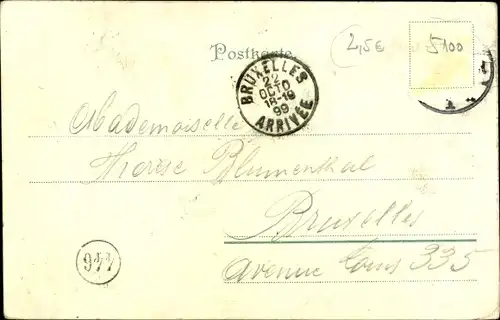 Postkarte.
2,5€
5100
BRUXELLES
22
OCTO
18-19
99
ARRIVÉE
Mademoiselle
Therese Blumenthal
Bruxelles
Avenue Louis 335